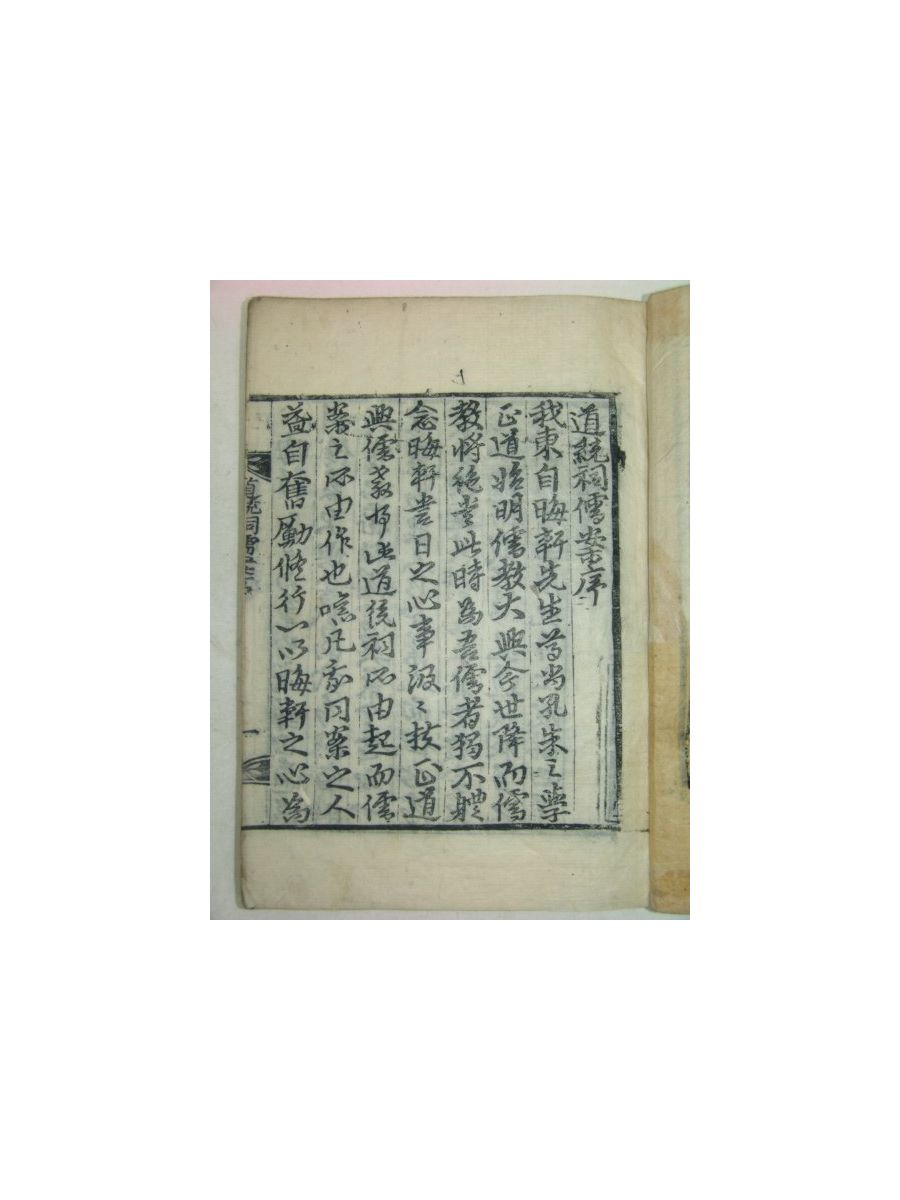 道統祠儒案序
我東自晦軒先生尊尚孔朱之學
正道始明儒教大興今世降而儒
教將絶當此時為吾儒者獨不體
念晦軒當日之心事汲〻扶正道
興儒教也此道統祠所由起而儒
案之所由作也噫凡我同案之人
益自奮勵修行一以晦軒之心為
道統祠儒案序
一